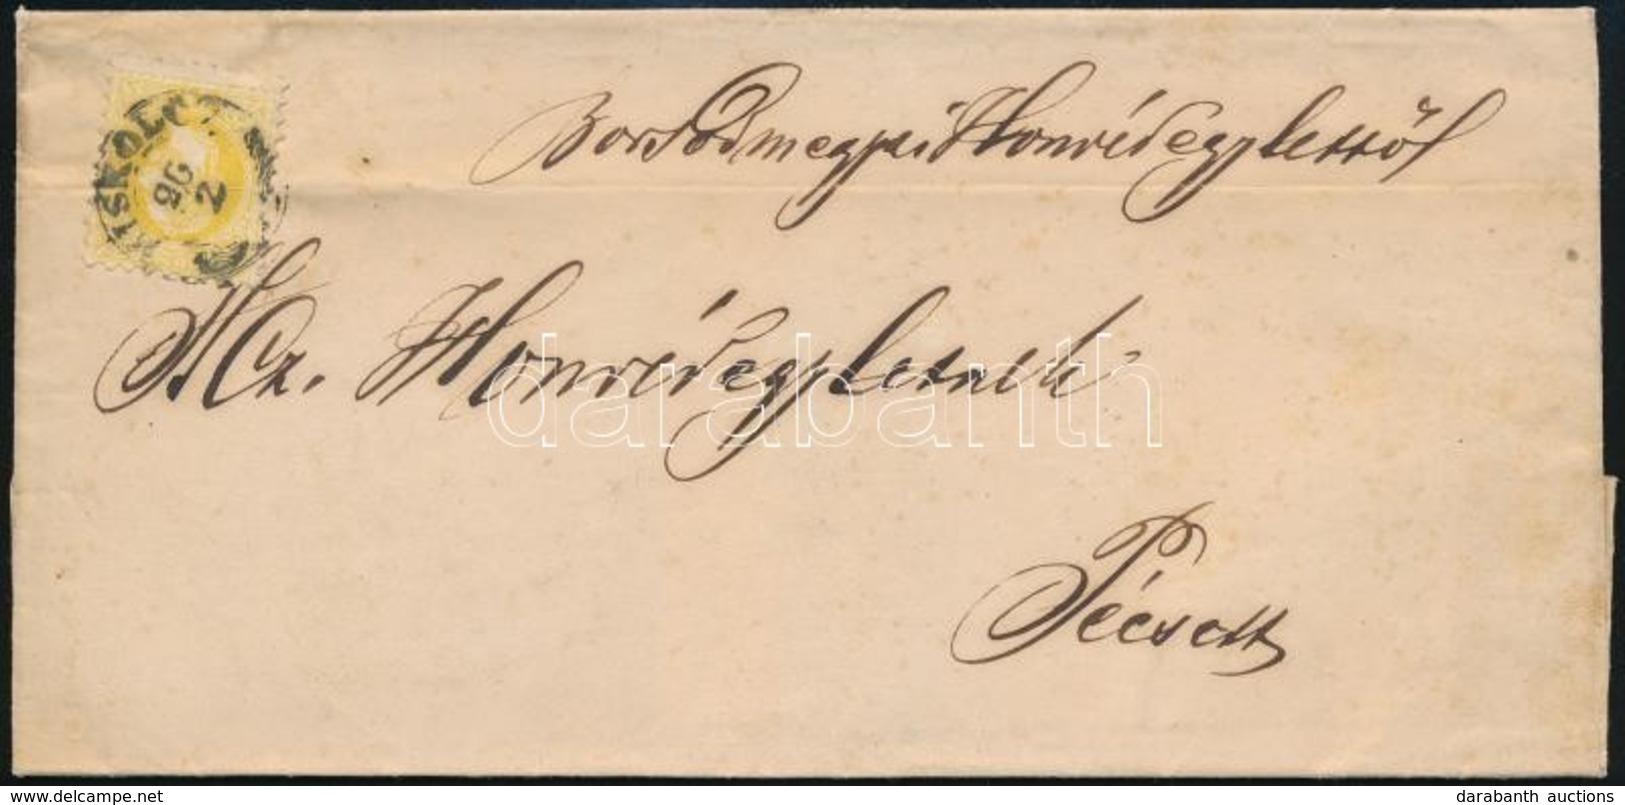 Borsodmegyei Honvédegylettől
MISKOLCZ
26
2
A Mz. Honvédegyletnek
Pécsett
darabanth
www.delcampe.net/user/Darabanth
darabanth auctions